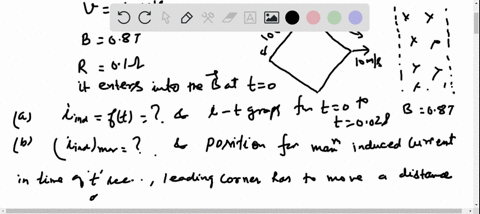 B = 0.8T
R = 0.1Ω
10 m/s
it enters into the B⃗ at t=0
B = 0.8T
(a) i_ind = f(t) = ? & i-t graph for t=0 to
t=0.02s
(b) (i_ind) = ? & Position for maxm induced current
in time of 't' sec..., leading corner has to move a distance